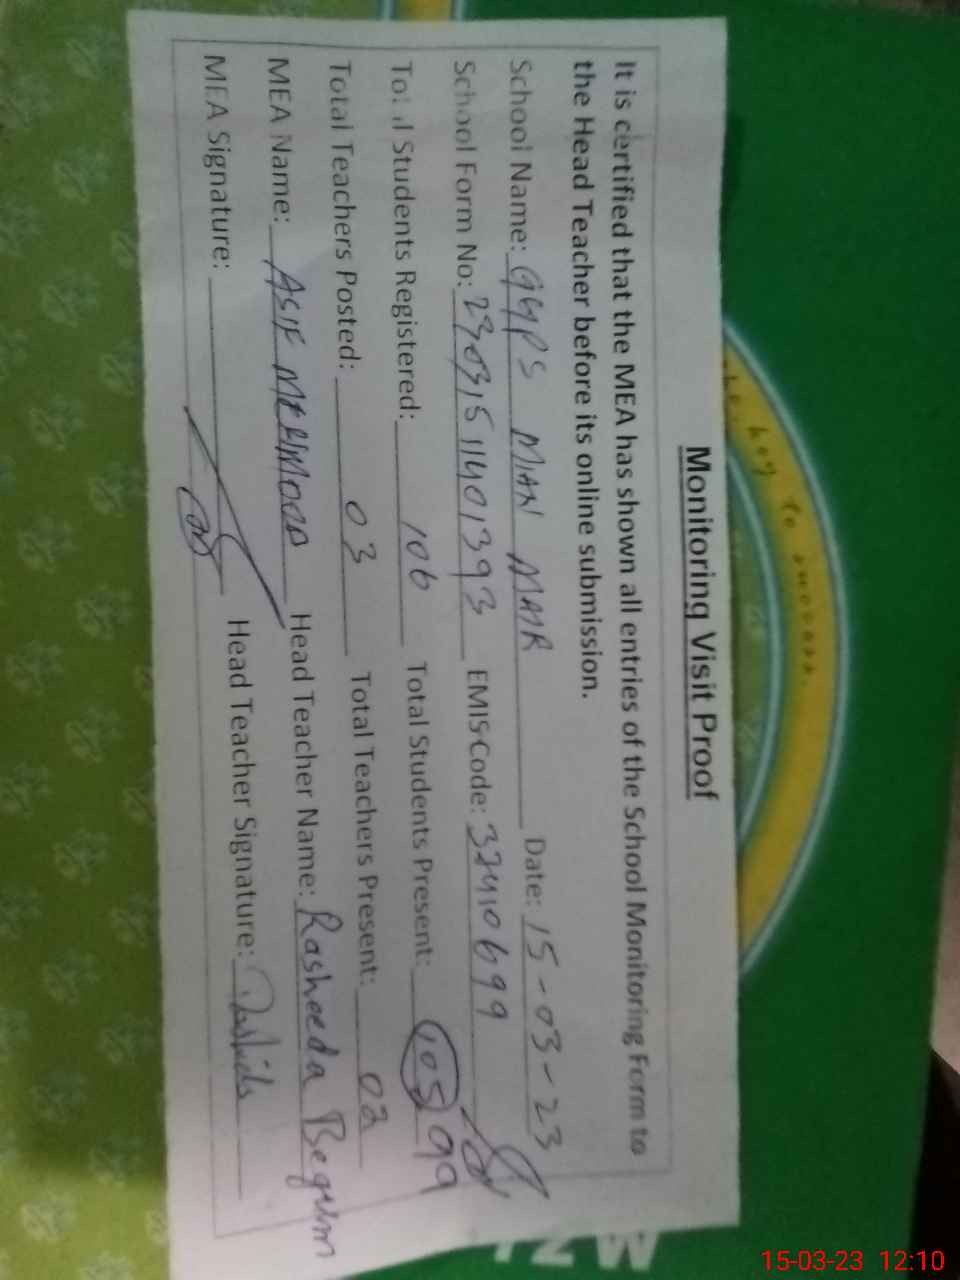 Monitoring Visit Proof
It is certified that the MEA has shown all entries of the School Monitoring Form to
the Head Teacher before its online submission.
School Name: GGPS MIAN MAIR Date: 15-03-23
School Form No: 23031511401393 EMIS Code: 37410699
Total Students Registered: 106 Total Students Present: 105 99
Total Teachers Posted: 03 Total Teachers Present: 02
MEA Name: ASIF MEHMOOD Head Teacher Name: Rasheeda Begum
MEA Signature: Head Teacher Signature:
key to success.
15-03-23 12:10